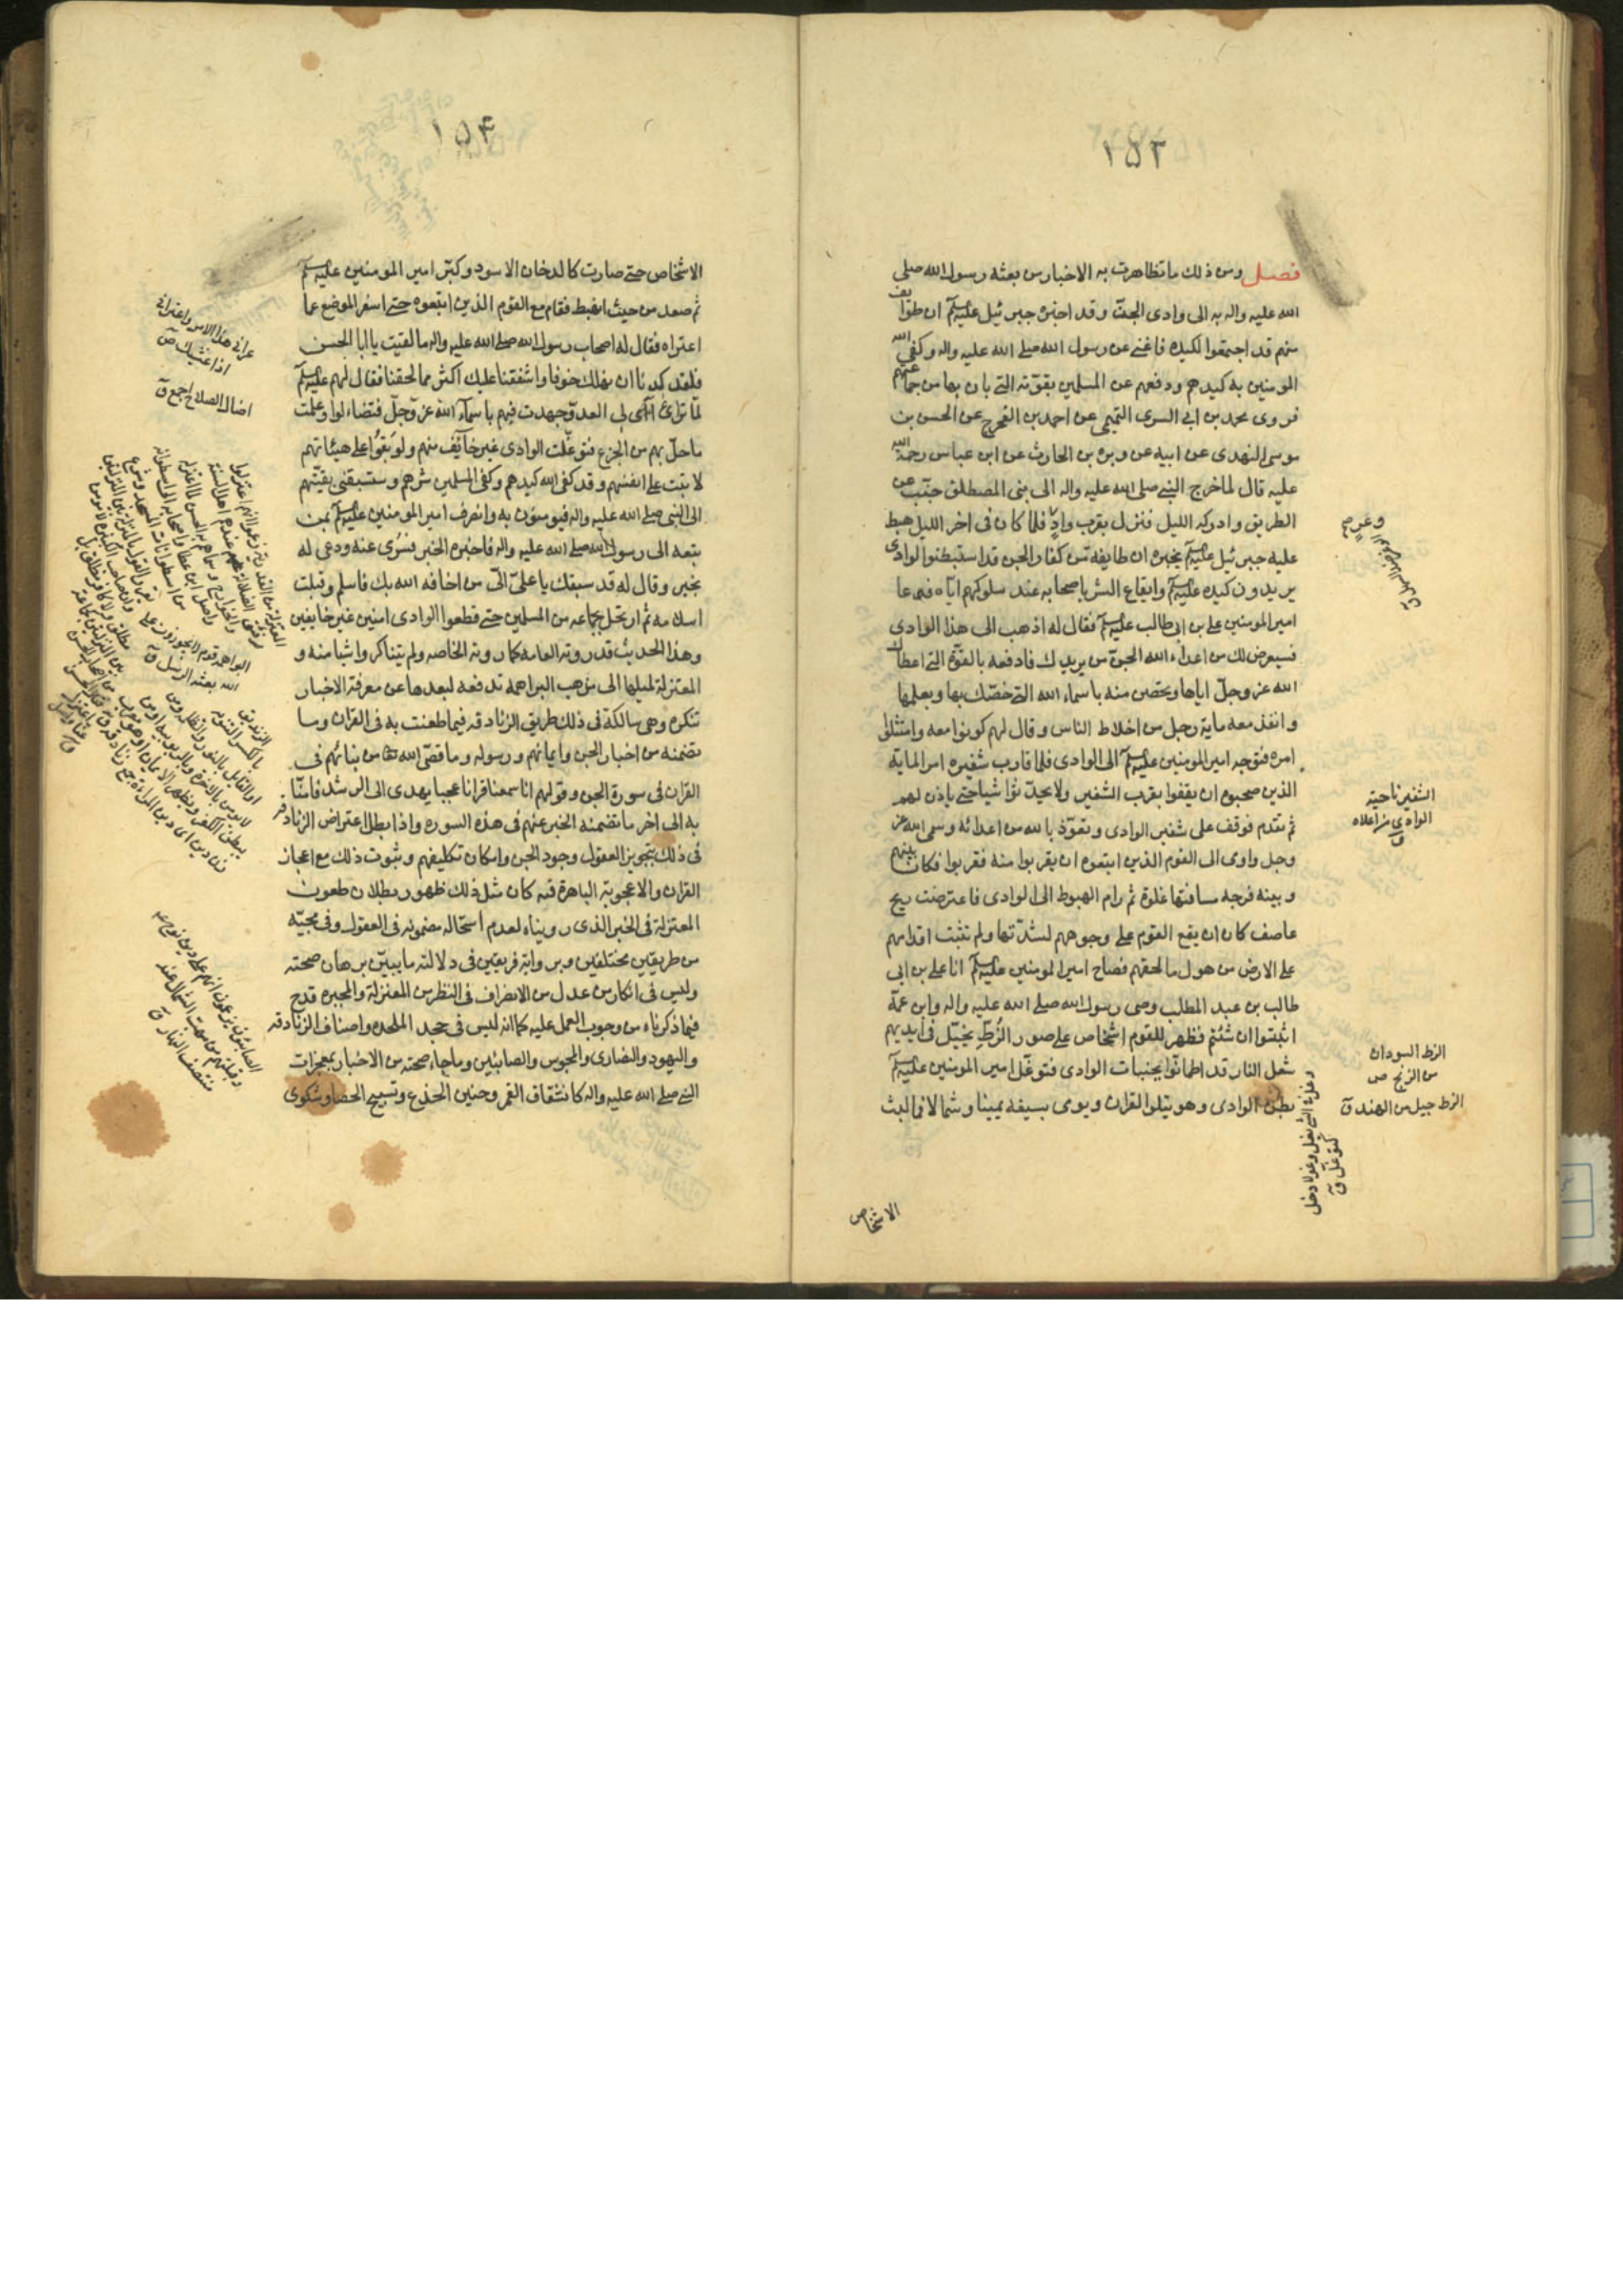 ١٥٣
فصل ومن ذلك ما تظاهرت به الاخبار من بعثه رسول الله صلى
الله عليه واله به الى وادى الجن وقد اخبره جبرئيل عليه السلم ان طوايف
منهم قد اجتمعوا لكيده فاغنى عن رسول الله صلى الله عليه واله وكفى الله
المومنين به كيدهم ودفعهم عن المسلمين بقوته التى بان بها من جماعتهم
فروى محمد بن ابى السرى التميمى عن احمد بن الفرج عن الحسن بن
موسى النهدى عن ابيه عن وبره بن الحارث عن ابن عباس رحمة الله
عليه قال لما خرج النبى صلى الله عليه واله الى بنى المصطلق جنب عن
الطريق وادركه الليل فنزل بقرب واد فلما كان فى اخر الليل هبط
عليه جبرئيل عليه السلم يخبره ان طايفة من كفار الجن قد استبطنوا الوادى
يريدون كيده عليه السلم وايقاع الشر باصحابه عند سلوكهم اياه فدعا
امير المومنين على بن ابى طالب عليه السلم فقال له اذهب الى هذا الوادى
فسيعرض لك من اعداء الله الجن من يريدك فادفعه بالقوة التى اعطاك
الله عز وجل اياها وتحصن منه باسماء الله التى خصك بها وبعلمها
وانفذ معه ماية رجل من اخلاط الناس وقال لهم كونوا معه وامتثلوا
امره فتوجه امير المومنين عليه السلم الى الوادى فلما قارب شفيره امر الماية
الذين صحبوه ان يقفوا بقرب الشفير ولا يحدثوا شيا حتى ياذن لهم
ثم تقدم فوقف على شفير الوادى وتعوذ بالله من اعدائه وسمى الله عز
وجل واومى الى القوم الذين ابتعوه ان يقربوا منه فقربوا فكان بينهم
وبينه فرجه مسافتها غلوة ثم رام الهبوط الى الوادى فاعترضت ريح
عاصف كان ان يقع القوم على وجوههم لشدتها ولم تثبت اقدامهم
على الارض من هول ما لحقهم فصاح امير المومنين عليه السلم انا على بن ابى
طالب بن عبد المطلب وصى رسول الله صلى الله عليه واله وابن عمة
اثبتوا ان شئتم فظهر للقوم اشخاص على صور الزط يخيل فى ايديهم
شعل النار قد اطمانوا بجنبات الوادى فتوغل امير المومنين عليه السلم
بطن الوادى وهو يتلوا القران ويومى بسيفه يمينا وشمالا فما لبث
الاشخاص
الشفير ناحية
الوادى من اعلاه
ق
الزط السودان
من الزنج ص
الزط جيل من الهند ق
١٥٤
الاشخاص حتى صارت كالدخان الاسود وكبر امير المومنين عليه السلم
ثم صعد من حيث اهبط فقام مع القوم الذين ابتعوه حتى اسفر الموضع عما
اعتراه فقال له اصحاب رسول الله صلى الله عليه واله ما لقيت يا ابا الحسن
فلقد كدنا ان نهلك خوفا واشفقنا عليك اكثر مما لحقنا فقال لهم عليه السلم
لما ترائ لى العدو جهدت فيهم باسماء الله عز وجل فتضاءلوا وعلمت
ماحل بهم من الجزع فتوغلت الوادى غير خايف منهم ولو بقوا على هيئاتهم
لاتيت على انفسهم وقد كفى الله كيدهم وكفى المسلمين شرهم وستسبقنى بقيتهم
الى النبى صلى الله عليه واله فيومنون به وانصرف امير المومنين عليه السلم بمن
تبعه الى رسول الله صلى الله عليه واله فاخبره الخبر فسرى عنه ودعى له
بخير وقال له قد سبقك يا على الى من اخافه الله بك فاسلم وقبلت
اسلامه ثم ارتحل بجماعه من المسلمين حتى قطعوا الوادى امنين غير خايفين
وهذا الحديث قد روته العامه كما روته الخاصه ولم يتناكروا شيا منه و
المعتزلة لميلها الى مذهب البراهمة تدفعه لبعدها عن معرفة الاخبار
تنكره وهى سالكة فى ذلك طريق الزنادقه فيما طعنت به فى القران وما
تضمنه من اخبار الجن وايمانهم ورسوله وما قص الله من نبائهم فى
القران فى سورة الجن وقولهم انا سمعنا قرانا عجبا يهدى الى الرشد فامنا
به الى اخر ما تضمنه الخبر عنهم فى هذه السوره واذا بطل اعتراض الزنادقه
فى ذلك بتجويز العقول وجود الجن وامكان تكليفهم وثبوت ذلك مع اعجاز
القران والاعجوبة الباهرة فيه كان مثل ذلك ظهور بطلان طعون
المعتزلة فى الخبر الذى رويناه لعدم استحاله مضمونه فى العقول وفى مجيئه
من طريقين مختلفين وبرواية فريقين فى دلالته ما يبين برهان صحته
وليس فى انكار من عدل من الانصراف فى النظر من المعتزلة والمجبره قدح
فيما ذكرناه من وجوب العمل عليه كما انه ليس فى جحد الملحده واصناف الزنادقه
واليهود والنصارى والمجوس والصابئين وما جاء صحته من الاخبار بمعجزات
النبى صلى الله عليه واله كانشقاق القمر وحنين الجذع وتسبيح الحصا وشكوى
عرانى هذا الامر واعترانى
اذا غشيك ص